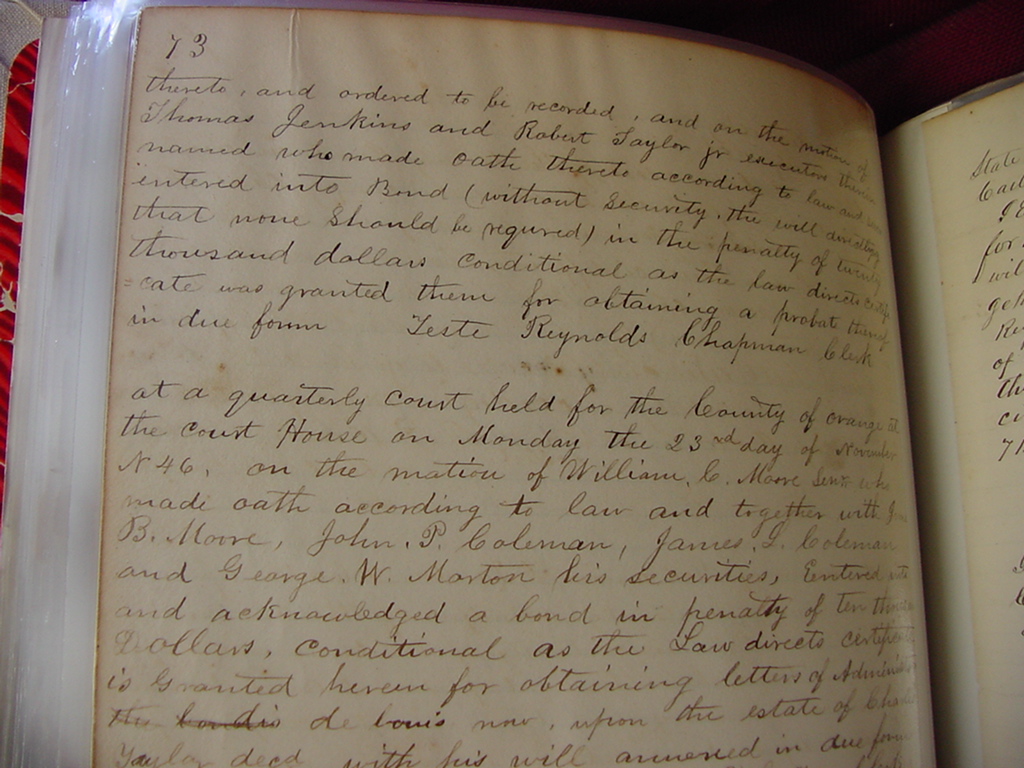 73
thereto, and ordered to be recorded, and on the motion of
Thomas Jenkins and Robert Taylor jr executors
named who made oath thereto according to law and
entered into Bond (without security, the will directing
that none should be required) in the penalty of twenty
thousand dollars conditional as the law directs certifi
=cate was granted them for obtaining a probat thereof
in due form Teste Reynolds Chapman Clerk
at a quarterly court held for the County of Orange at
the court House on Monday the 23rd day of November
1846, on the motion of William. C. Moore Senr who
made oath according to law and together with
B. Moore, John. P. Coleman, James. L. Coleman
and George. W. Morton his securities, Entered into
and acknowledged a bond in penalty of ten thousand
Dollars, conditional as the Law directs certificate
is Granted herein for obtaining letters of Administ
de bonis non, upon the estate of Charles
Taylor decd with his will annexed in due form
State
for
will
of